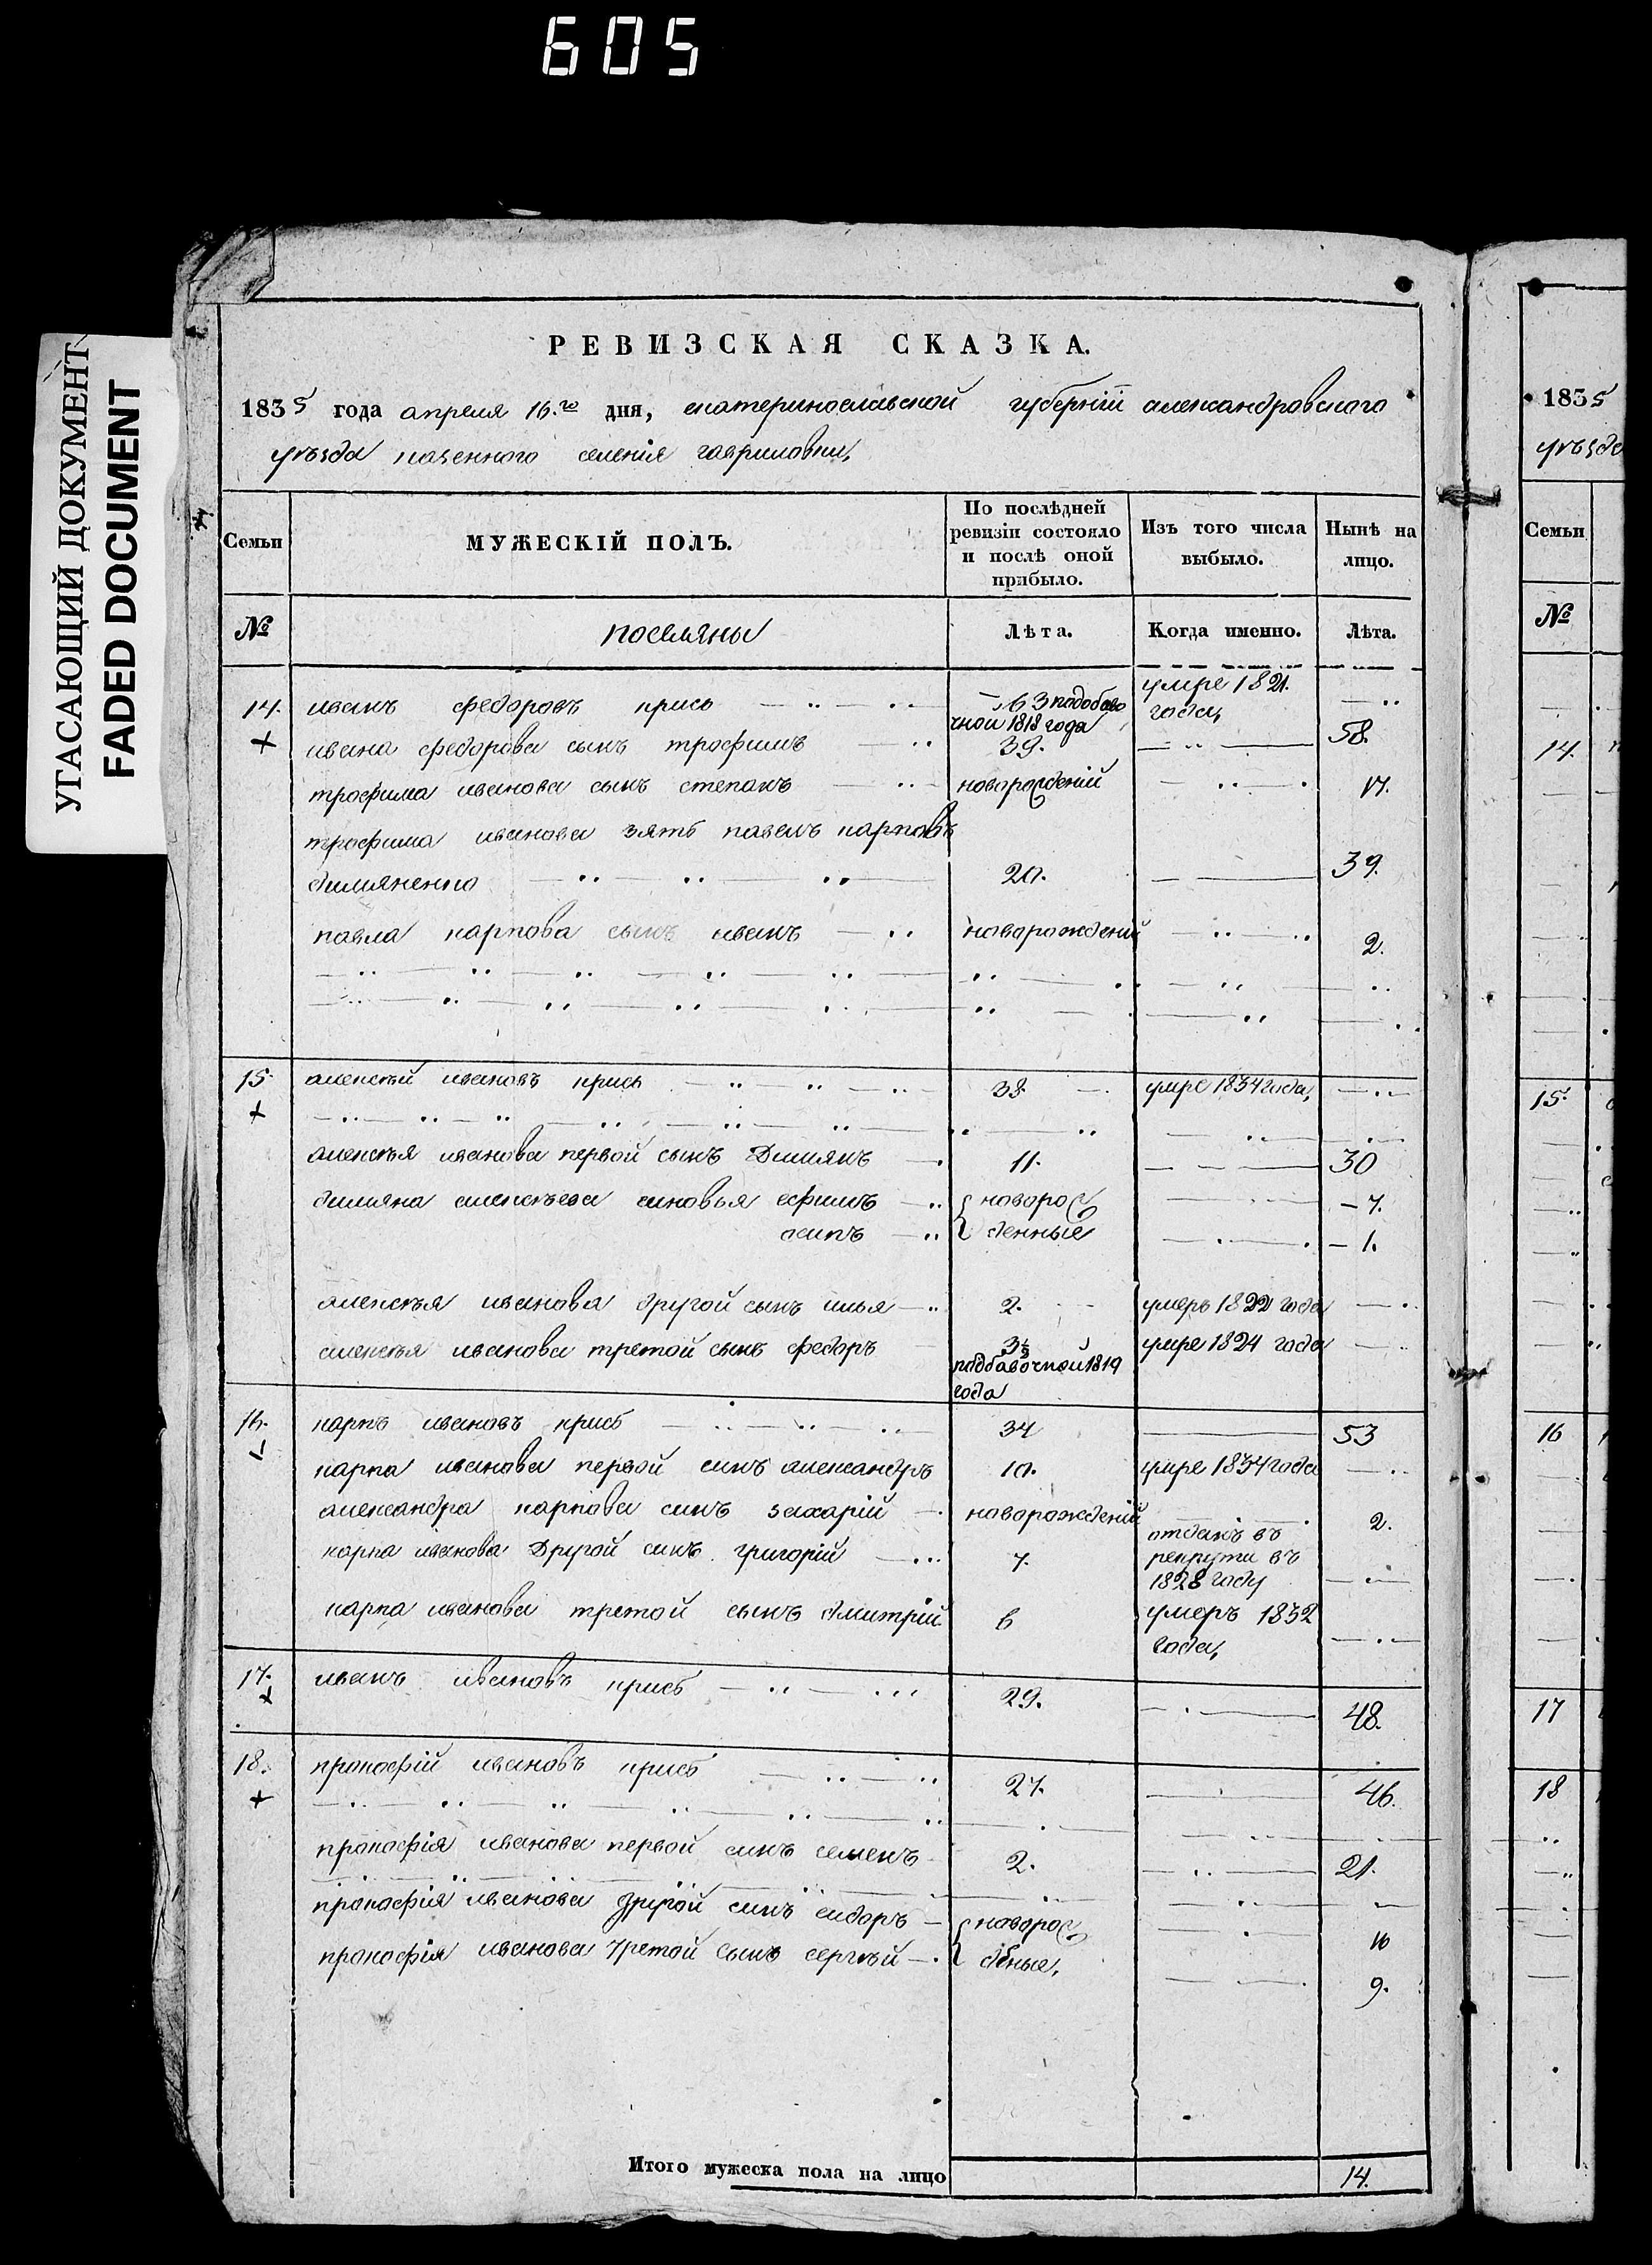 605
УГАСАЮЩИЙ ДОКУМЕНТ
FADED DOCUMENT
РЕВИЗСКАЯ СКАЗКА.
1835 года апреля 16.го дня, екатеринославской губерніи александровского
уѣзда казенного селенія гавриловки,
Семьи
МУЖЕСКІЙ ПОЛЪ.
По послѣдней ревизіи состояло и послѣ оной прибыло.
Изъ того числа выбыло.
Нынѣ на лицо.
№ поселяны Лѣта. Когда именно. Лѣта.
14. иванъ федоровъ крись 63 подобавочной 1818 года умре 1821. года,
ивана федорова сынъ трофимъ 39. 58.
трофима иванова сынъ степанъ новорожденій 17.
трофима иванова зять павелъ карповъ
димяненко 20. 39.
павла карпова сынъ иванъ новорожденій 2.
15 алексѣй ивановъ крись 38. умре 1834 года,
алексѣя иванова первой сынъ Димянъ 11. 30
димяна алексѣева синовья ефимъ новорож 7.
осипъ денные 1.
алексѣя иванова другой сынъ илья 2. умеръ 1822 года
алексѣя иванова третой сынъ федоръ 3½ поддавочной 1819 года умре 1824 года
16. карпъ ивановъ крись 34 53
карпа иванова первой синъ александръ 10. умре 1834 года
александра карпова синъ захарій новорожденій 2.
карпа иванова Другой синъ григорій 7. отданъ въ рекрути въ 1828 году
карпа иванова третой сынъ дмитрій 6 умеръ 1832 года,
17. иванъ ивановъ крись 29. 48.
18. прокофій ивановъ крись 27. 46.
прокофія иванова первой синъ семенъ 2. 21.
прокофія иванова другой синъ сидоръ новорож 10
прокофія иванова третой сынъ сергѣй деные, 9.
Итого мужеска пола на лицо 14.
1835
уѣзда
Семьи
№
14.
15.
16
17
18